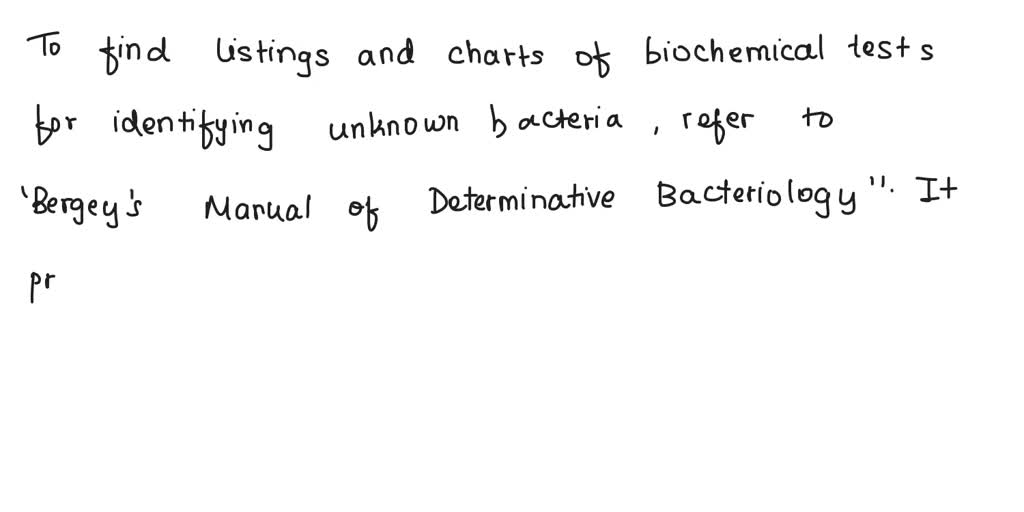 To find listings and charts of biochemical tests
for identifying unknown bacteria, refer to
'Bergey's Manual of Determinative Bacteriology". It
pr